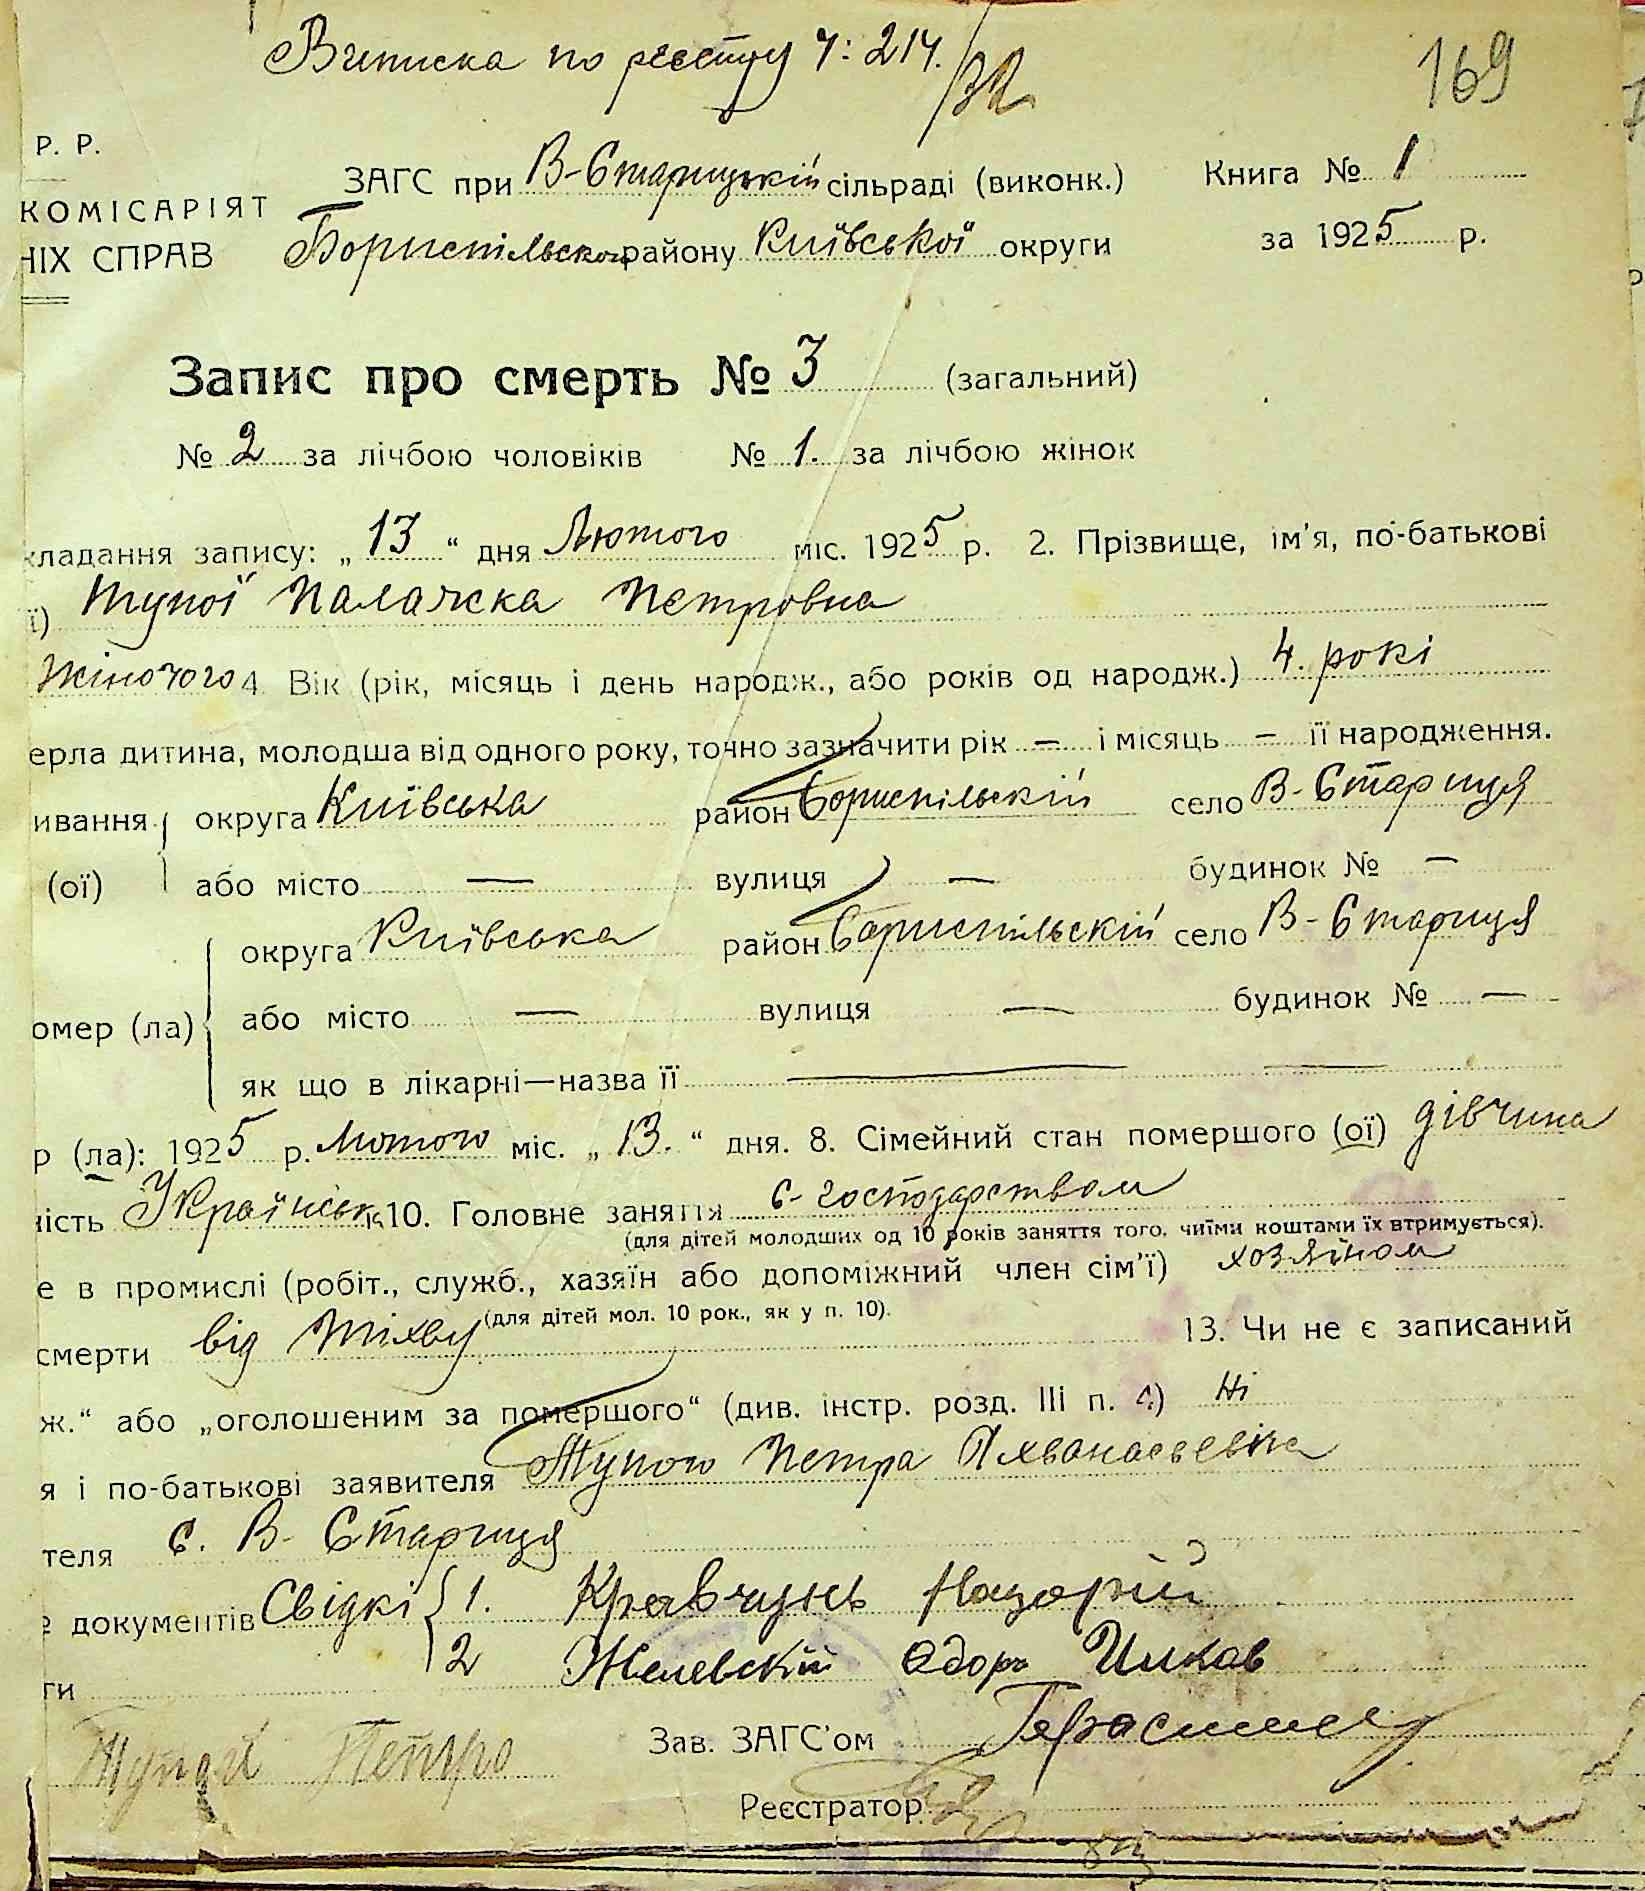 Виписка по реєстру Ч: 214.
169
Р. Р.
ЗАГС при В-Старицькій сільраді (виконк.) Книга № 1
КОМІСАРІЯТ
НІХ СПРАВ Бориспільского району Київської округи за 1925 р.
Запис про смерть № 3 (загальний)
№ 2 за лічбою чоловіків № 1. за лічбою жінок
кладання запису: „13“ дня Лютого міс. 1925 р. 2. Прізвище, ім'я, по-батькові
ї) Тупої Палажска Петровна
Жіночого 4. Вік (рік, місяць і день народж., або років од народж.) 4. рокі
ерла дитина, молодша від одного року, точно зазначити рік — і місяць — її народження.
ивання округа Київська район Бориспільскій село В-Стариця
(ої) або місто — вулиця — будинок № —
округа Київська район Бориспільскій село В-Стариця
омер (ла) або місто — вулиця — будинок № —
як що в лікарні—назва її —
р (ла): 1925 р. Лютого міс. „13.“ дня. 8. Сімейний стан помершого (ої) дівчина
ність Українська 10. Головне заняття с-господарством
(для дітей молодших од 10 років заняття того, чиїми коштами їх втримується).
е в промислі (робіт., служб., хазяїн або допоміжний член сім'ї) хозяїном
(для дітей мол. 10 рок., як у п. 10).
смерти від Тіхву 13. Чи не є записаний
ж.“ або „оголошеним за помершого“ (див. інстр. розд. III п. 4.) Ні
я і по-батькові заявителя Тупого Петра Ахванасьевіча
теля с. В-Стариця
документів Свідкі 1. Кравчунь Назарій
2 Жилевскій Өдорь
ги
Тупой Петро Зав. ЗАГС'ом
Реєстратор